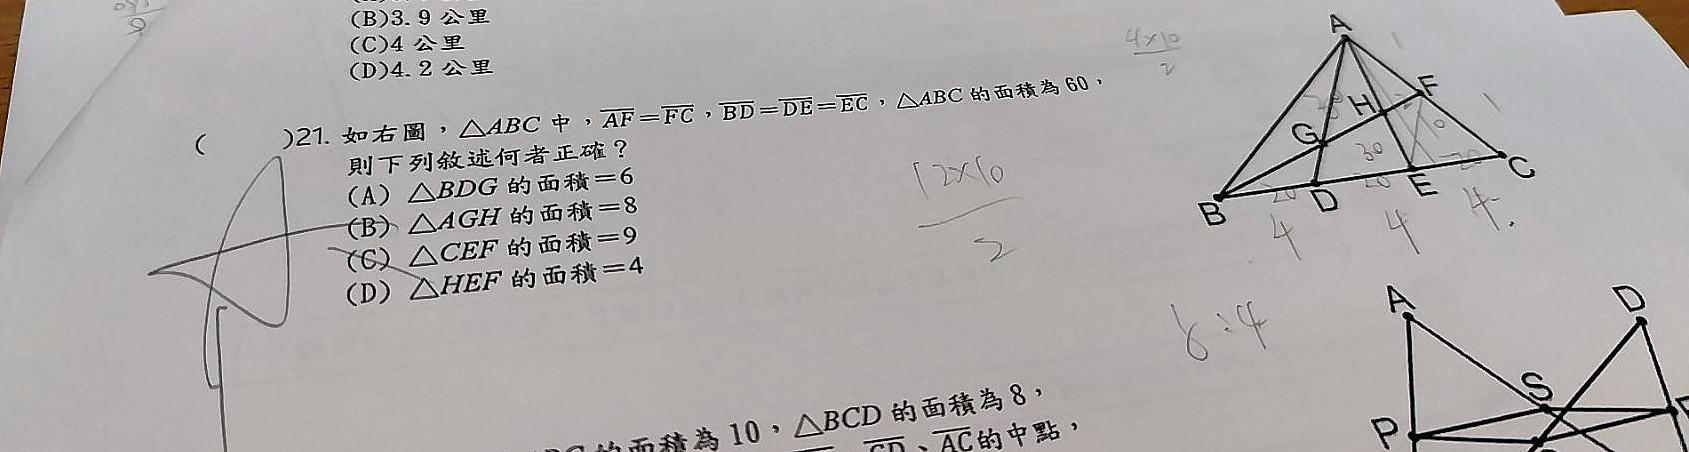 (B)3.9 公里
(C)4 公里
(D)4.2 公里
(　　)21. 如右圖，△ABC 中，AF=FC，BD=DE=EC，△ABC 的面積為 60，
則下列敘述何者正確？
(A) △BDG 的面積=6
(B) △AGH 的面積=8
(C) △CEF 的面積=9
(D) △HEF 的面積=4
4×10
2
12×10
2
A
F
H
G
B
D
E
C
30
20
4
4
4
A
D
S
P
的面積為 10，△BCD 的面積為 8，
CD、AC的中點，